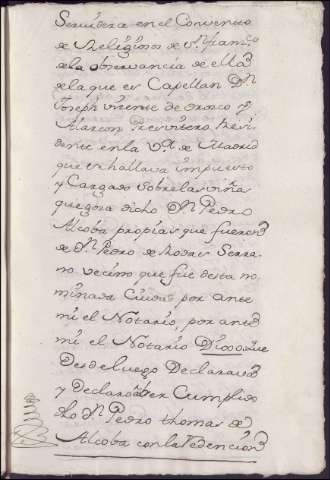 Servidera en el Convento
de Religiosos de Sn. Franco
de la observancia de ella
de la que es Capellan Dn
Joseph Vicente de Orosco y
Alarcon Presvitero, Resi
dente en la Va. de Madrid
que se hallava impuesto
y Cargado sobre las viñas
que goza dicho Dn Pedro
Alcoba propias que fueron
de Dn Pedro de Rodas Serra
no vecino que fue desta no
minada Ciudad por ante
mi el Notario, por ante
mi el Notario Dixo que
Desde luego Declarava
y Declaró aber Cumplido
dho Dn Pedro thomas de
Alcoba con la Redencion